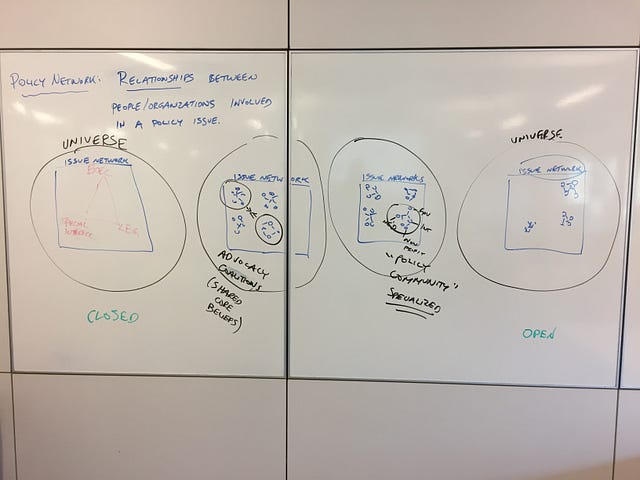 POLICY NETWORK: RELATIONSHIPS BETWEEN
PEOPLE/ORGANIZATIONS INVOLVED
IN A POLICY ISSUE.
UNIVERSE
ISSUE NETWORK
EXEC
SPECIAL
INTEREST
LEG
CLOSED
ISSUE NETWORK
ADVOCACY
COALITIONS
(SHARED
CORE
BELIEFS)
ISSUE NETWORKS
GOV
INT
NON
PROFIT
"POLICY
COMMUNITY"
SPECIALIZED
UNIVERSE
ISSUE NETWORK
OPEN